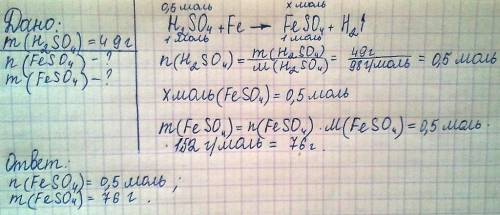 Дано:
m(H₂SO₄)=49г
n(FeSO₄)-?
m(FeSO₄)-?
0,5 моль х моль
H₂SO₄+Fe→FeSO₄+H₂↑
1 моль 1 моль
n(H₂SO₄)=m(H₂SO₄)/M(H₂SO₄)=49г/98г/моль=0,5 моль
х моль(FeSO₄)=0,5 моль
m(FeSO₄)=n(FeSO₄)·M(FeSO₄)=0,5 моль·
·152 г/моль=76 г.
Ответ:
n(FeSO₄)=0,5 моль;
m(FeSO₄)=76 г.